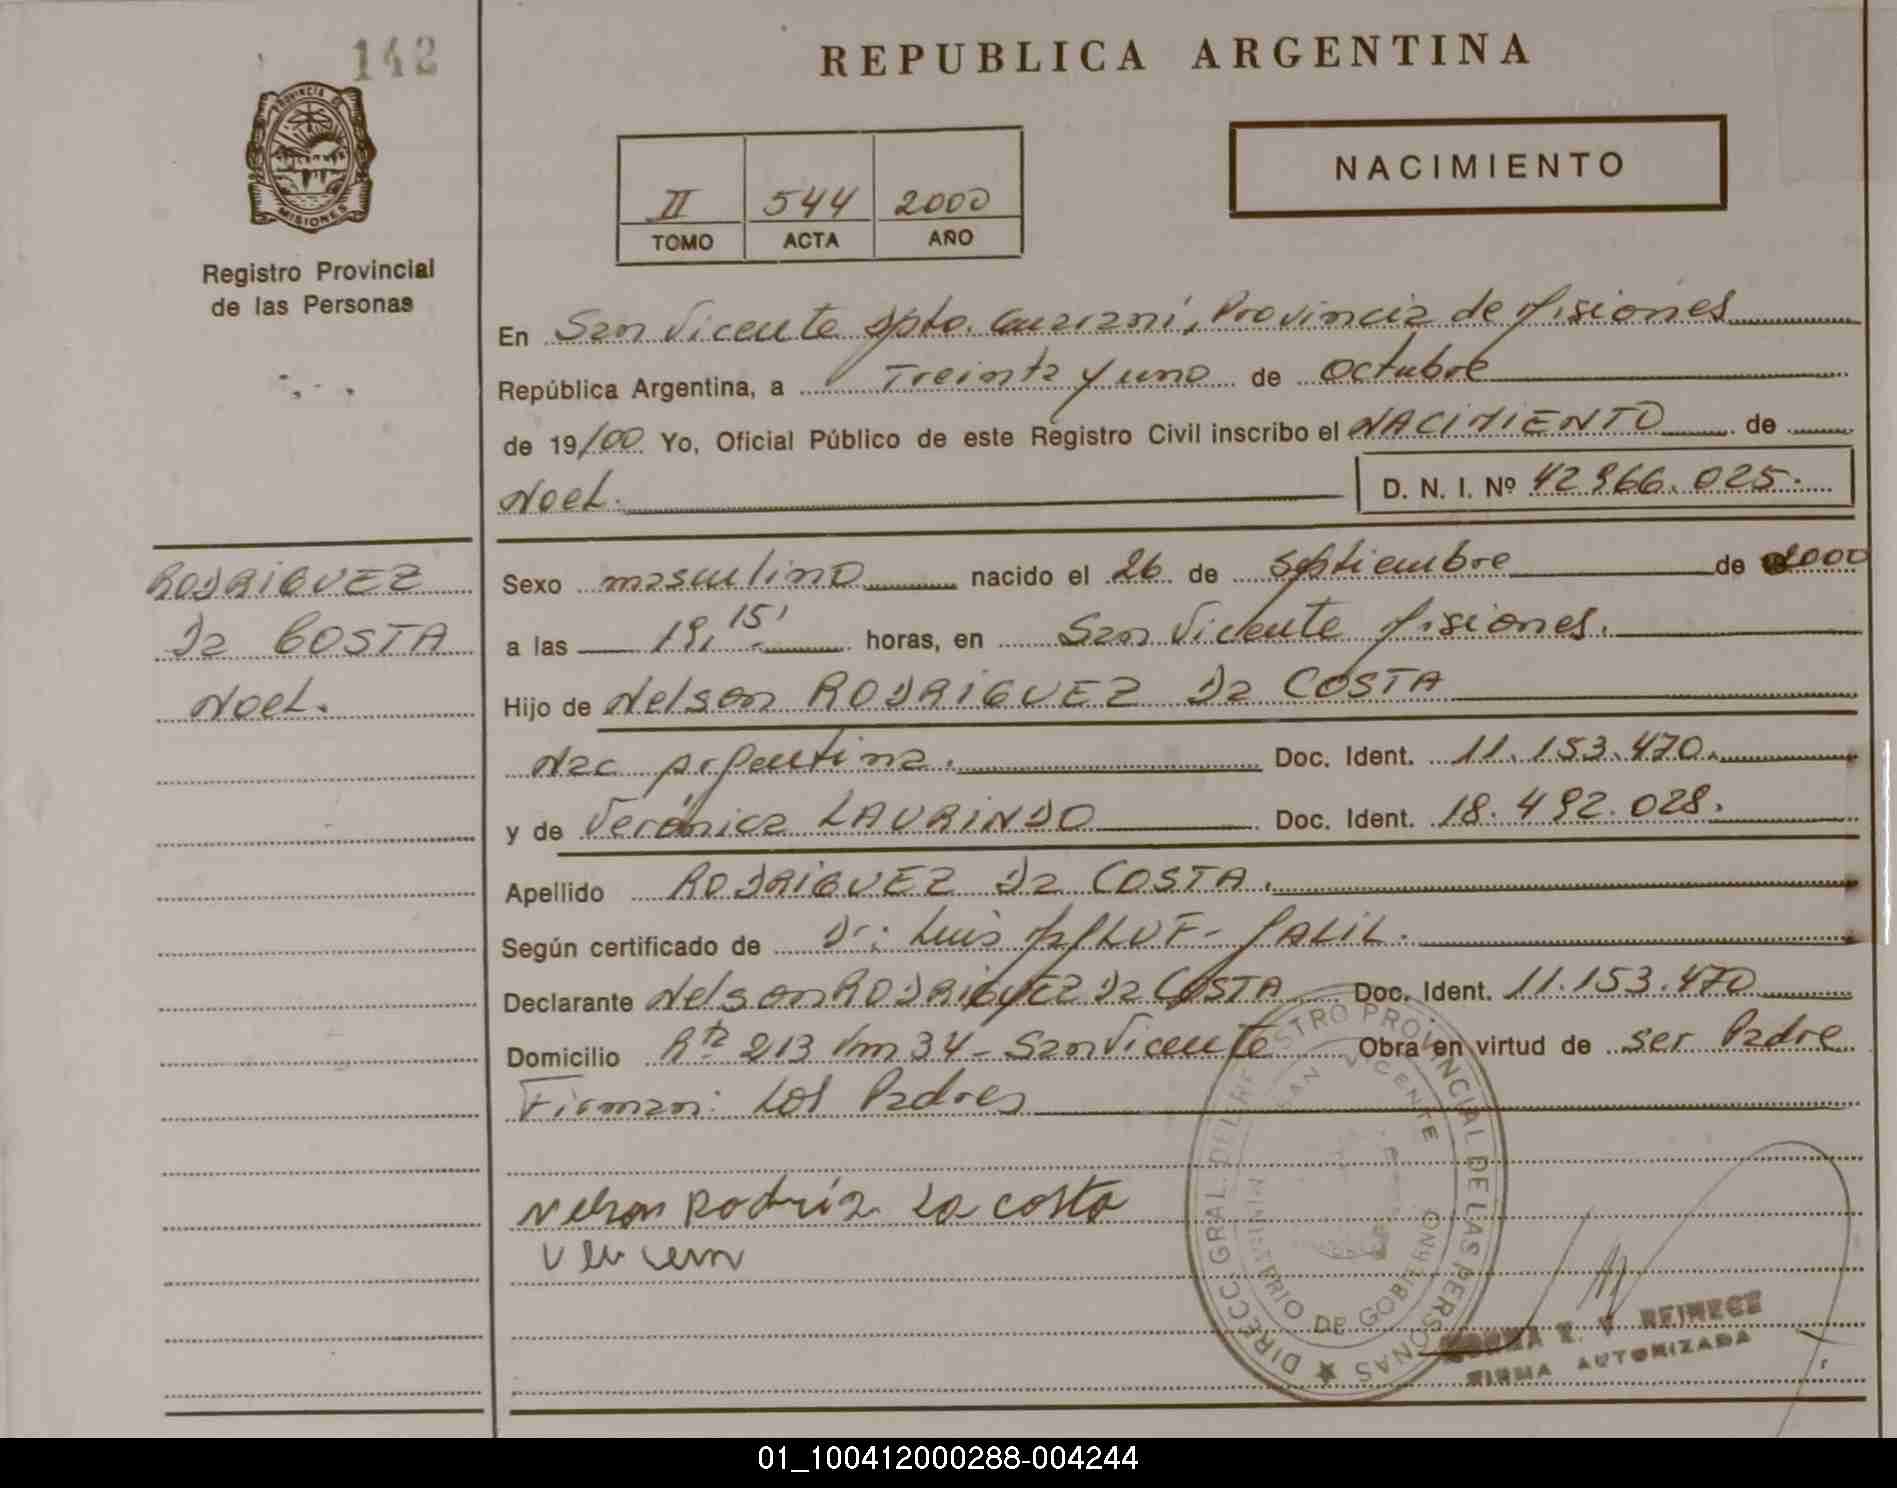 142
PROVINCIA DE
MISIONES
Registro Provincial
de las Personas
REPUBLICA ARGENTINA
NACIMIENTO
II 544 2000
TOMO ACTA AÑO
En San Vicente Dpto. Guaraní, Provincia de Misiones
República Argentina, a Treinta y uno de Octubre
de 19/00 Yo, Oficial Público de este Registro Civil inscribo el NACIMIENTO de
Noel. D. N. I. Nº 42966.025.
RODRIGUEZ
Da COSTA
Noel.
Sexo masculino nacido el 26 de Septiembre de 2000
a las 19,15' horas, en San Vicente Misiones.
Hijo de Nelson RODRIGUEZ Da COSTA
Nac Argentina. Doc. Ident. 11.153.470.
y de Verónica LAURINDO Doc. Ident. 18.492.028.
Apellido RODRIGUEZ Da COSTA.
Según certificado de Dr: Luis JALIL.
Declarante Nelson RODRIGUEZ Da COSTA Doc. Ident. 11.153.470
Domicilio Rta 213 Km 34 - San Vicente Obra en virtud de ser Padre
Firman: Los Padres
Nelson Rodríz Da costa
DIRECC GRAL. DEL REGISTRO PROVINCIAL DE LAS PERSONAS
SAN VICENTE
MINISTERIO DE GOBIERNO
NORMA E. V. REINECE
FIRMA AUTORIZADA
01_100412000288-004244